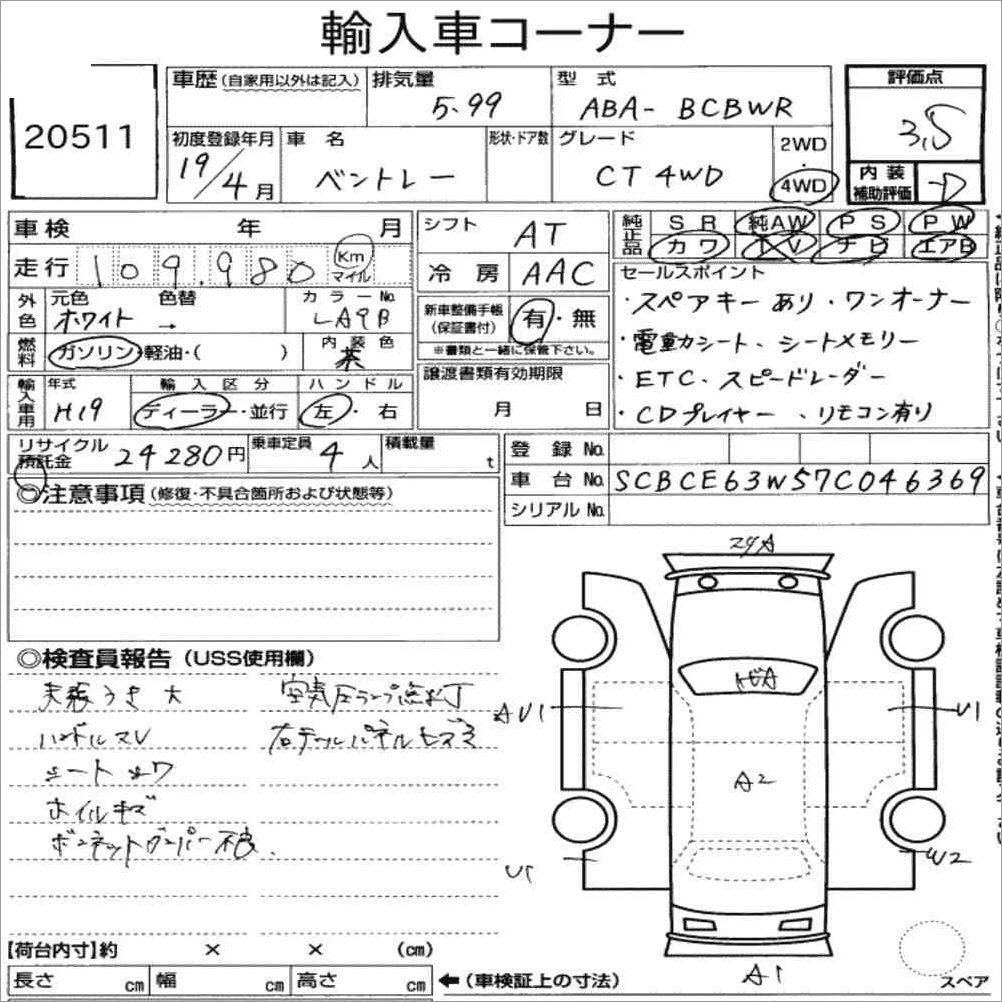 輸入車コーナー
20511
車歴(自家用以外は記入)
排気量
5.99
型 式
ABA- BCBWR
評価点
3.5
初度登録年月
19/4月
車 名
ベントレー
形状・ドア数
グレード
CT 4WD
2WD
・
4WD
内 装
補助評価
D
車検 年 月
走行 109,980 Km
マイル
シフト AT
冷 房 AAC
純正品
SR 純AW PS PW
カワ TV ナビ エアB
外色
元色 色替 カラーNo.
ホワイト → LA9B
燃料
ガソリン・軽油・( )
内 装 色
茶
新車整備手帳
(保証書付)
有・無
※書類と一緒に保管下さい。
セールスポイント
・スペアキーあり・ワンオーナー
・電動カシート、シートメモリー
・ETC、スピードレーダー
・CDプレイヤー、リモコン有り
輸入車用
年式
H19
輸 入 区 分
ディーラー・並行
ハ ン ド ル
左・右
譲渡書類有効期限
月 日
リサイクル
預託金
24280円
乗車定員 4人
積載量 t
登 録 No.
車 台 No. SCBCE63W57C046369
シリアル No.
◎注意事項(修復・不具合箇所および状態等)
◎検査員報告(USS使用欄)
天張うき大
空気圧ランプ点灯
ハンドルスレ
右テールパネルキズ
シートシワ
ホイルキズ
ボンネットダンパー不良
AU1
U1
A2
W2
A1
【荷台内寸】約 × × (cm)
長さ cm 幅 cm 高さ cm ←(車検証上の寸法)
スペア